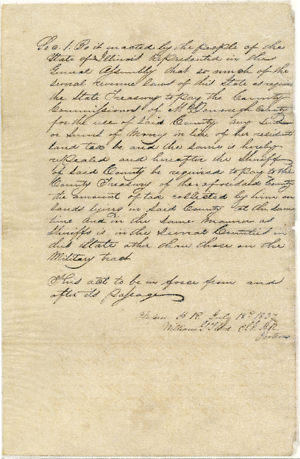 Sec. 1. Be it enacted by the people of the
State of Illinois Represented in the
General Assembly that so much of the
several revenue laws of this State as require
the State Treasurer to pay the County
Commissioners of McDonough County
for the use of said County any
or Sums of Money in lieu of her resident
land tax be and the same is hereby
repealed and hereafter the Sheriff
of said County be required to pay to the
County Treasury of the aforesaid County
the amount of tax collected by him on
lands lying in said County at the same
time and in the same manner as
Sheriffs in the Several Counties in
this State other than those on the
Military tract
This act to be in force from and
after its passage
H. R. July 18th 1837
William Clk. H.R.